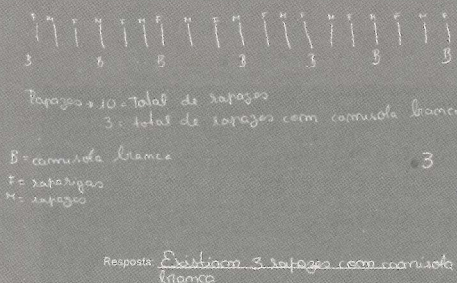 B B B B B B B
Rapazes → 10 = Total de rapazes
3 = total de rapazes com camisola branca
B = camisola branca
F = raparigas
M = rapazes
3
Resposta: Existiam 3 rapazes com camisola
branca